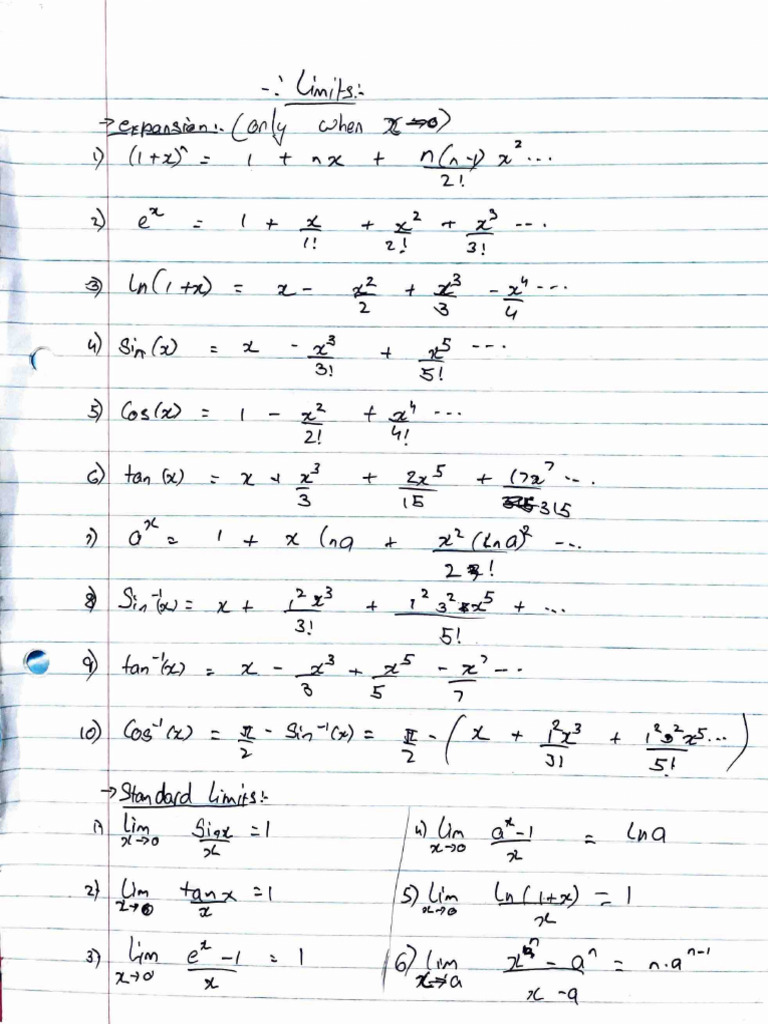 -: Limits:-
→ expansion:- (only when x→0)
1) (1+x)^n = 1 + nx + n(n-1)/2! x^2 ...
2) e^x = 1 + x/1! + x^2/2! + x^3/3! ...
3) ln(1+x) = x - x^2/2 + x^3/3 - x^4/4 ...
4) Sin(x) = x - x^3/3! + x^5/5! ...
5) Cos(x) = 1 - x^2/2! + x^4/4! ...
6) tan(x) = x + x^3/3 + 2x^5/15 + 17x^7/315 ...
7) a^x = 1 + x lna + x^2(lna)^2/2! ...
8) Sin^-1(x) = x + 1^2 x^3/3! + 1^2 3^2 x^5/5! + ...
9) tan^-1(x) = x - x^3/3 + x^5/5 - x^7/7 ...
10) Cos^-1(x) = π/2 - Sin^-1(x) = π/2 - (x + 1^2x^3/3! + 1^2 3^2 x^5/5! ...)
→ Standard Limits:-
1) lim x→0 Sinx/x = 1
2) lim x→0 tanx/x = 1
3) lim x→0 e^x - 1/x = 1
4) lim x→0 a^x - 1/x = lna
5) lim x→0 ln(1+x)/x = 1
6) lim x→a x^n - a^n/x - a = n.a^n-1